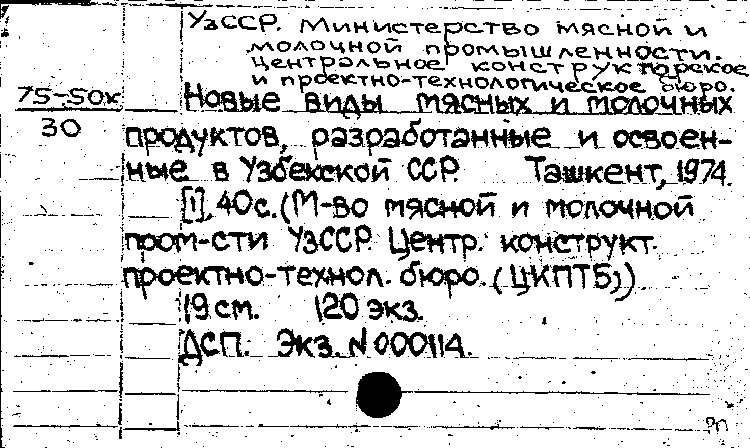 УзССР. Министерство мясной и
молочной промышленности.
Центральное конструкторское
и проектно-технологическое бюро.
75-50к
30
Новые виды мясных и молочных
продуктов, разработанные и освоен-
ные в Узбекской ССР. Ташкент, 1974.
[1], 40с. (М-во мясной и молочной
пром-сти УзССР. Центр. конструкт.
проектно-технол. бюро. (ЦКПТБ)).
19 см. 120 экз.
ДСП. Экз. N 000114.